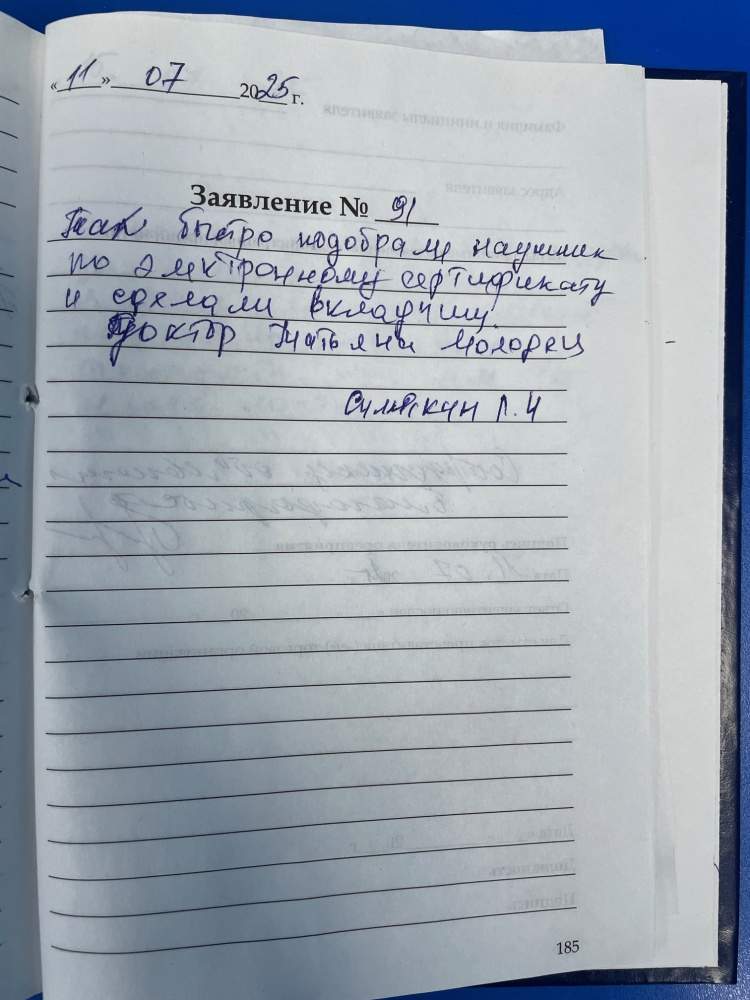 «11» 07 2025 г.
Заявление № 91
Так быстро подобрали наушник
по электронному сертификату
и сделали вкладыш
Доктор Татьяна молодец
Л. И
185